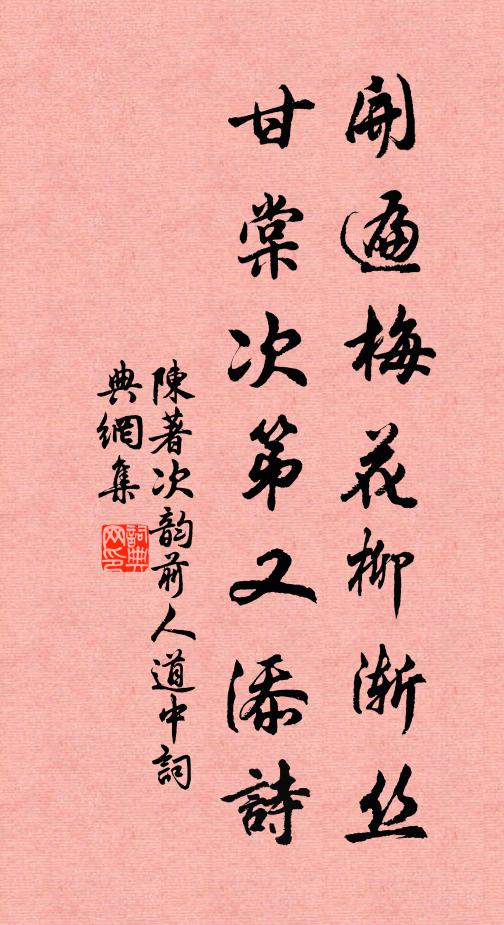 開遍梅花柳渐丝
甘棠次第又添詩
陳著次韵前人道中詞
典網集
詞典网印